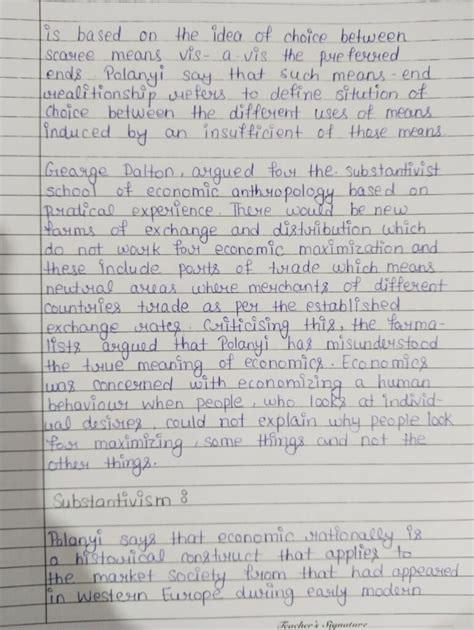 is based on the idea of choice between
scaree means vis-a-vis the preferred
ends. Polanyi say that such means-end
realitionship refers to define sitution of
choice between the different uses of means
induced by an insufficient of those means.
Gearge Dalton, argued four the substantivist
school of economic anthropology based on
pratical experience. There would be new
farms of exchange and distribution which
do not work four economic maximization and
these include parts of trade which means
neutral areas where merchants of different
countries trade as per the established
exchange rates. Criticising this, the farma-
lists argued that Polanyi has misunderstood
the true meaning of economics. Economics
was concerned with economizing a human
behaviour when people, who looks at individ-
ual desires, could not explain why people look
for maximizing, some things and not the
other things.
Substantivism :
Polanyi says that economic rationally is
a historical construct that applies to
the market society from that had appeared
in Western Europe during early modern
Teacher's Signature